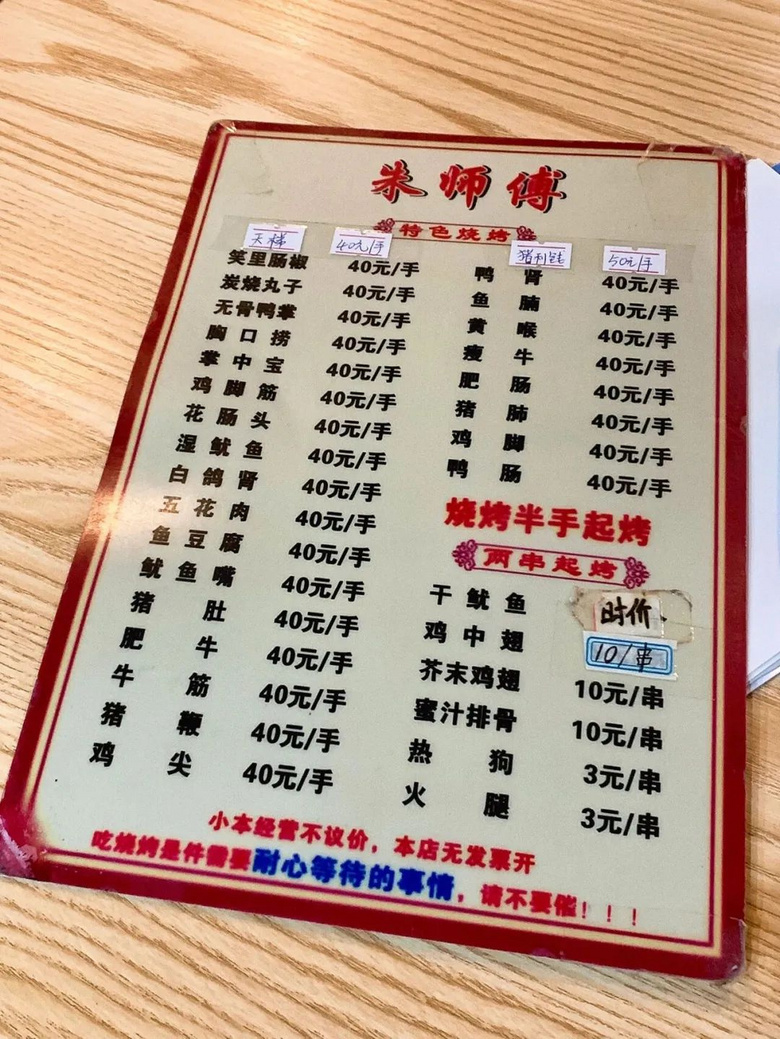 朱师傅
特色烧烤
天梯 40元/手
笑里肠椒 40元/手
炭烧丸子 40元/手
无骨鸭掌 40元/手
胸口捞 40元/手
掌中宝 40元/手
鸡脚筋 40元/手
花肠头 40元/手
湿鱿鱼 40元/手
白鸽肾 40元/手
五花肉 40元/手
鱼豆腐 40元/手
鱿鱼嘴 40元/手
猪肚 40元/手
肥牛 40元/手
牛筋 40元/手
猪鞭 40元/手
鸡尖 40元/手
50元/手
鸭肾 40元/手
鱼腩 40元/手
黄喉 40元/手
瘦牛 40元/手
肥肠 40元/手
猪肺 40元/手
鸡脚 40元/手
鸭肠 40元/手
烧烤半手起烤
两串起烤
干鱿鱼 时价.
鸡中翅 10/串
芥末鸡翅 10元/串
蜜汁排骨 10元/串
热狗 3元/串
火腿 3元/串
小本经营不议价，本店无发票开
吃烧烤是件需要耐心等待的事情，请不要催！！！